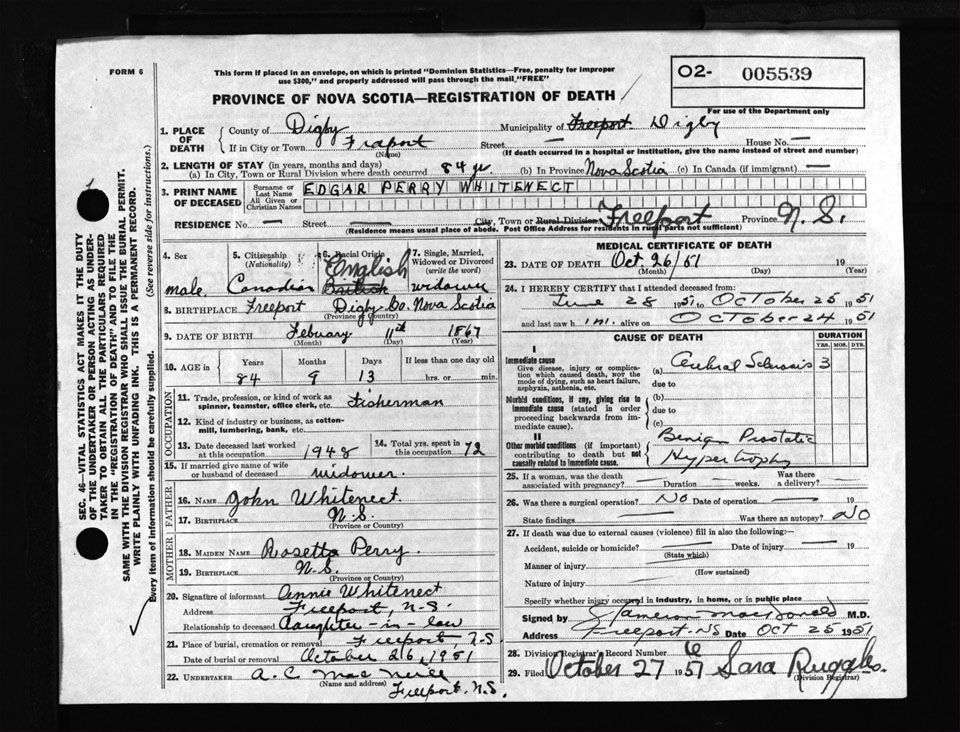 FORM 6
This form if placed in an envelope, on which is printed "Dominion Statistics—Free, penalty for improper
use $300," and properly addressed will pass through the mail "FREE"
O2- 005539
For use of the Department only
PROVINCE OF NOVA SCOTIA—REGISTRATION OF DEATH
SEC. 46—VITAL STATISTICS ACT MAKES IT THE DUTY
OF THE UNDERTAKER OR PERSON ACTING AS UNDER-
TAKER TO OBTAIN ALL THE PARTICULARS REQUIRED
IN THE "REGISTRATION OF DEATH" AND TO FILE THE
SAME WITH THE DIVISION REGISTRAR WHO SHALL ISSUE THE BURIAL PERMIT.
WRITE PLAINLY WITH UNFADING INK. THIS IS A PERMANENT RECORD.
Every item of information should be carefully supplied. (See reverse side for instructions.)
1. PLACE OF DEATH
County of Digby Municipality of Freeport Digby
If in City or Town Freeport Street — House No. —
(Name) (If death occurred in a hospital or institution, give the name instead of street and number)
2. LENGTH OF STAY (in years, months and days)
(a) In City, Town or Rural Division where death occurred 84 yr (b) In Province Nova Scotia (c) In Canada (if immigrant) —
3. PRINT NAME OF DECEASED
Surname or Last Name
All Given or Christian Names
EDGAR PERRY WHITENECT
RESIDENCE No. — Street — City, Town or Rural Division Freeport Province N. S.
(Residence means usual place of abode. Post Office Address for residents in rural parts not sufficient)
4. Sex male
5. Citizenship (Nationality) Canadian
6. Racial Origin English British
7. Single, Married, Widowed or Divorced (write the word) widower
8. BIRTHPLACE Freeport Digby Co. Nova Scotia
(Province or Country)
9. DATE OF BIRTH Febuary 11th 1867
(Month) (Day) (Year)
10. AGE in Years Months Days If less than one day old
84 9 13 hrs. or min.
OCCUPATION
11. Trade, profession or kind of work as spinner, teamster, office clerk, etc. Fisherman
12. Kind of industry or business, as cotton-mill, lumbering, bank, etc.
13. Date deceased last worked at this occupation 1948
14. Total yrs. spent in this occupation 72
15. If married give name of wife or husband of deceased widower
FATHER
16. NAME John Whitenect
17. BIRTHPLACE N. S.
(Province or Country)
MOTHER
18. MAIDEN NAME Rosetta Perry
19. BIRTHPLACE N. S.
(Province or Country)
20. Signature of informant Annie Whitenect
Address Freeport, N. S.
Relationship to deceased daughter-in-law
21. Place of burial, cremation or removal Freeport, N.S
Date of burial or removal October 26, 1951
22. UNDERTAKER A. C. Mac
(Name and address) Freeport, N.S.
MEDICAL CERTIFICATE OF DEATH
23. DATE OF DEATH Oct 26/51 19
(Month) (Day) (Year)
24. I HEREBY CERTIFY that I attended deceased from:
June 28 1951 to October 25 1951
and last saw him alive on October 24 1951
CAUSE OF DEATH DURATION
YRS. MOS. DYS.
I
Immediate cause
Give disease, injury or complication which caused death, NOT the mode of dying, such as heart failure, asphyxia, asthenia, etc.
(a) Cerebral Sclerosis 3
due to
Morbid conditions, if any, giving rise to immediate cause (stated in order proceeding backwards from immediate cause).
(b)
due to
(c)
II
Other morbid conditions (if important) contributing to death but not causally related to immediate cause.
Benign Prostatic
Hypertrophy
25. If a woman, was the death associated with pregnancy? Duration weeks. Was there a delivery?
26. Was there a surgical operation? No Date of operation — 19
State findings Was there an autopsy? No
27. If death was due to external causes (violence) fill in also the following:
Accident, suicide or homicide? Date of injury — 19
(State which)
Manner of injury
(How sustained)
Nature of injury
Specify whether injury occurred in industry, in home, or in public place
Signed by MacDonald M.D.
Address Freeport NS Date Oct 25 1951
28. Division Registrar's Record Number 6
29. Filed October 27 1951 Sara Ruggles
(Division Registrar)